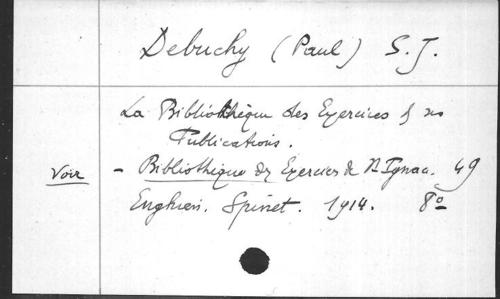 Debuchy (Paul) S. J.
La Bibliothèque des Exercices & ses
Publications.
Voir - Bibliothèque des Exercices de St Ignace. 49
Enghien. Spinet. 1914. 8º